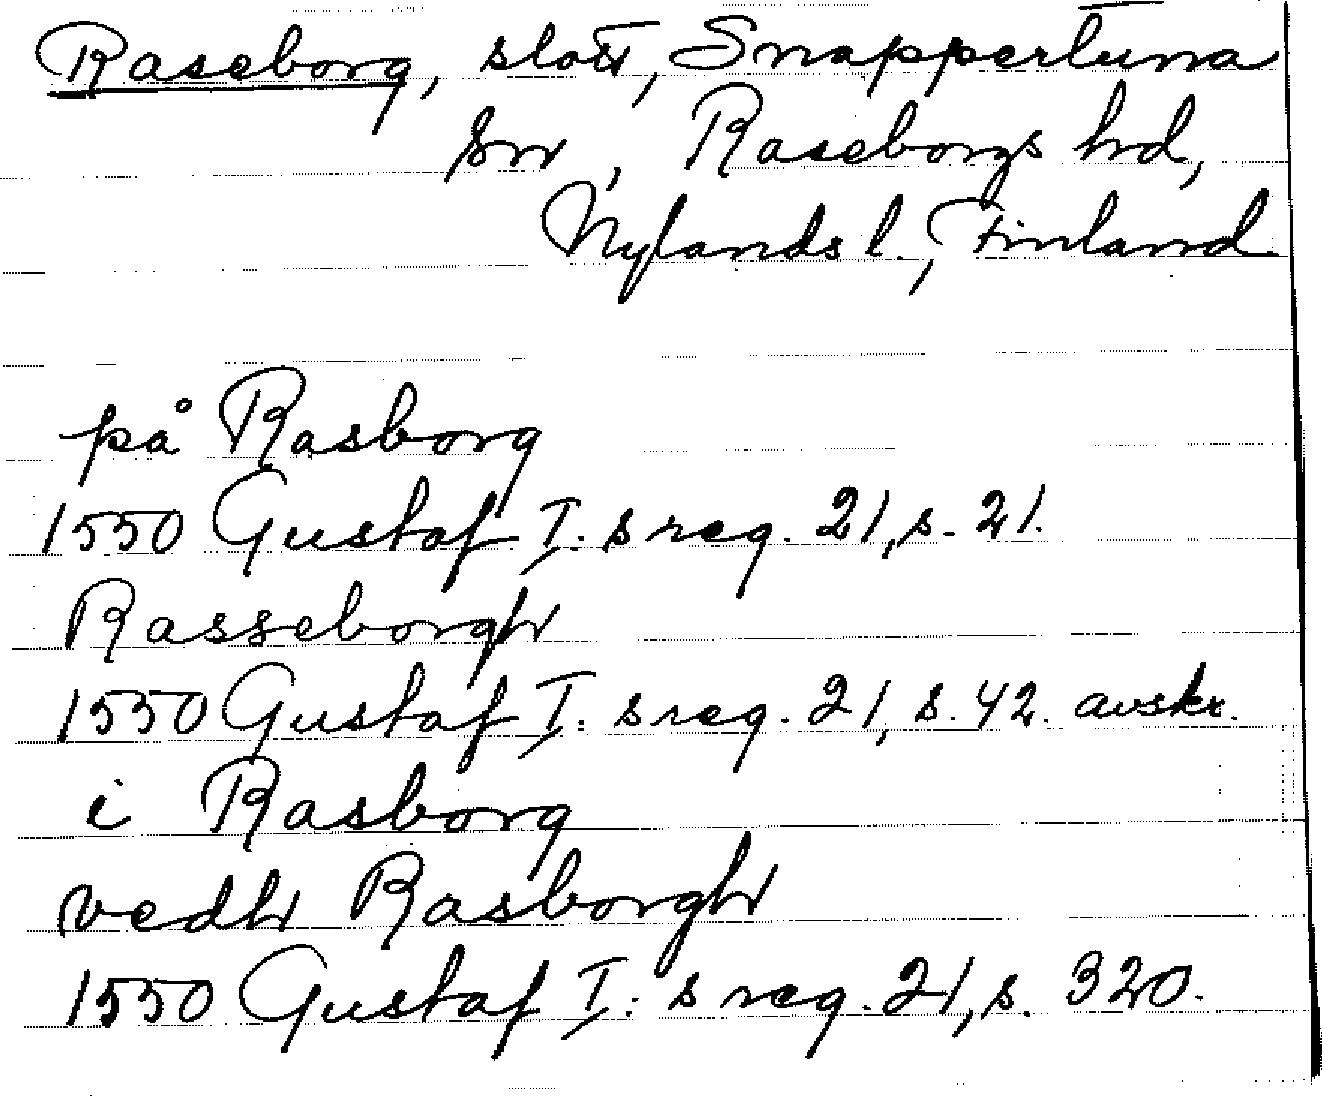 Raseborg, slott, Snappertuna
sn, Raseborgs hd,
Nylands l., Finland
på Rasborg
1550 Gustaf I:s reg. 21, s. 21.
Rasseborgh
1550 Gustaf I:s reg. 21, s. 42. avskr.
i Rasborg
vedh Rasborgh
1550 Gustaf I:s reg. 21, s. 320.